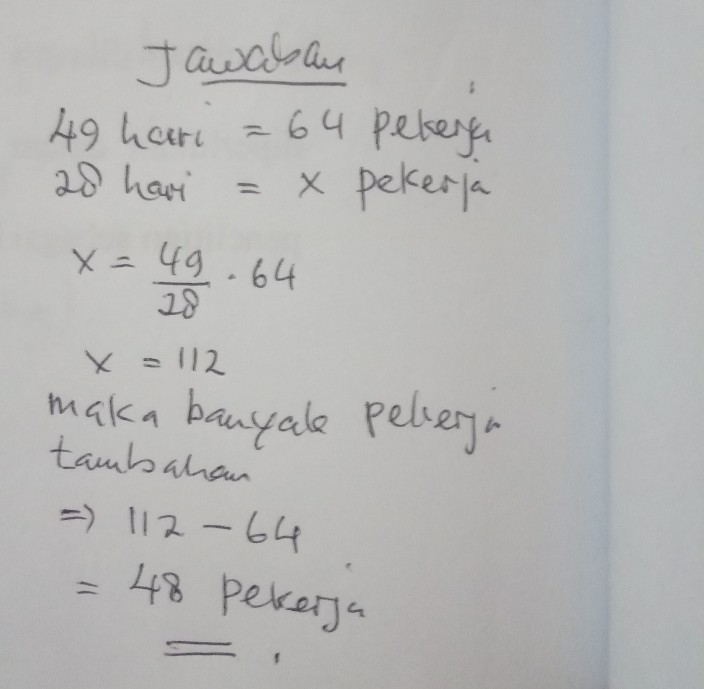 Jawaban
49 hari = 64 pekerja
28 hari = x pekerja
x = 49/28 . 64
x = 112
maka banyak pekerja
tambahan
=> 112 - 64
= 48 pekerja